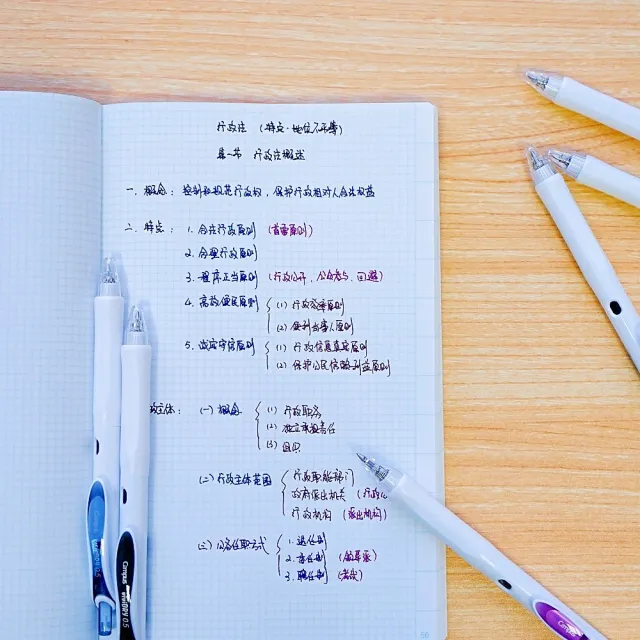 行政法 (特点:地位不平等)
第一节 行政法概述
一. 概念: 控制和规范行政权, 保护行政相对人合法权益
二. 特点: 1. 合法行政原则 (首要原则)
2. 合理行政原则
3. 程序正当原则 (行政公开, 公众参与, 回避)
4. 高效便民原则 (1) 行政效率原则
(2) 便利当事人原则
5. 诚实守信原则 (1) 行政信息真实原则
(2) 保护公民信赖利益原则
政主体: (一) 概念 (1) 行政职务
(2) 独立承担责任
(3) 组织
(二) 行政主体范围 行政职能部门
政府派出机关 (行政
行政机构 (派出机构)
(三) 公务任职方式 1. 选任制
2. 委任制
3. 聘任制 (考试)
Campus
WINDRY 0.5
56